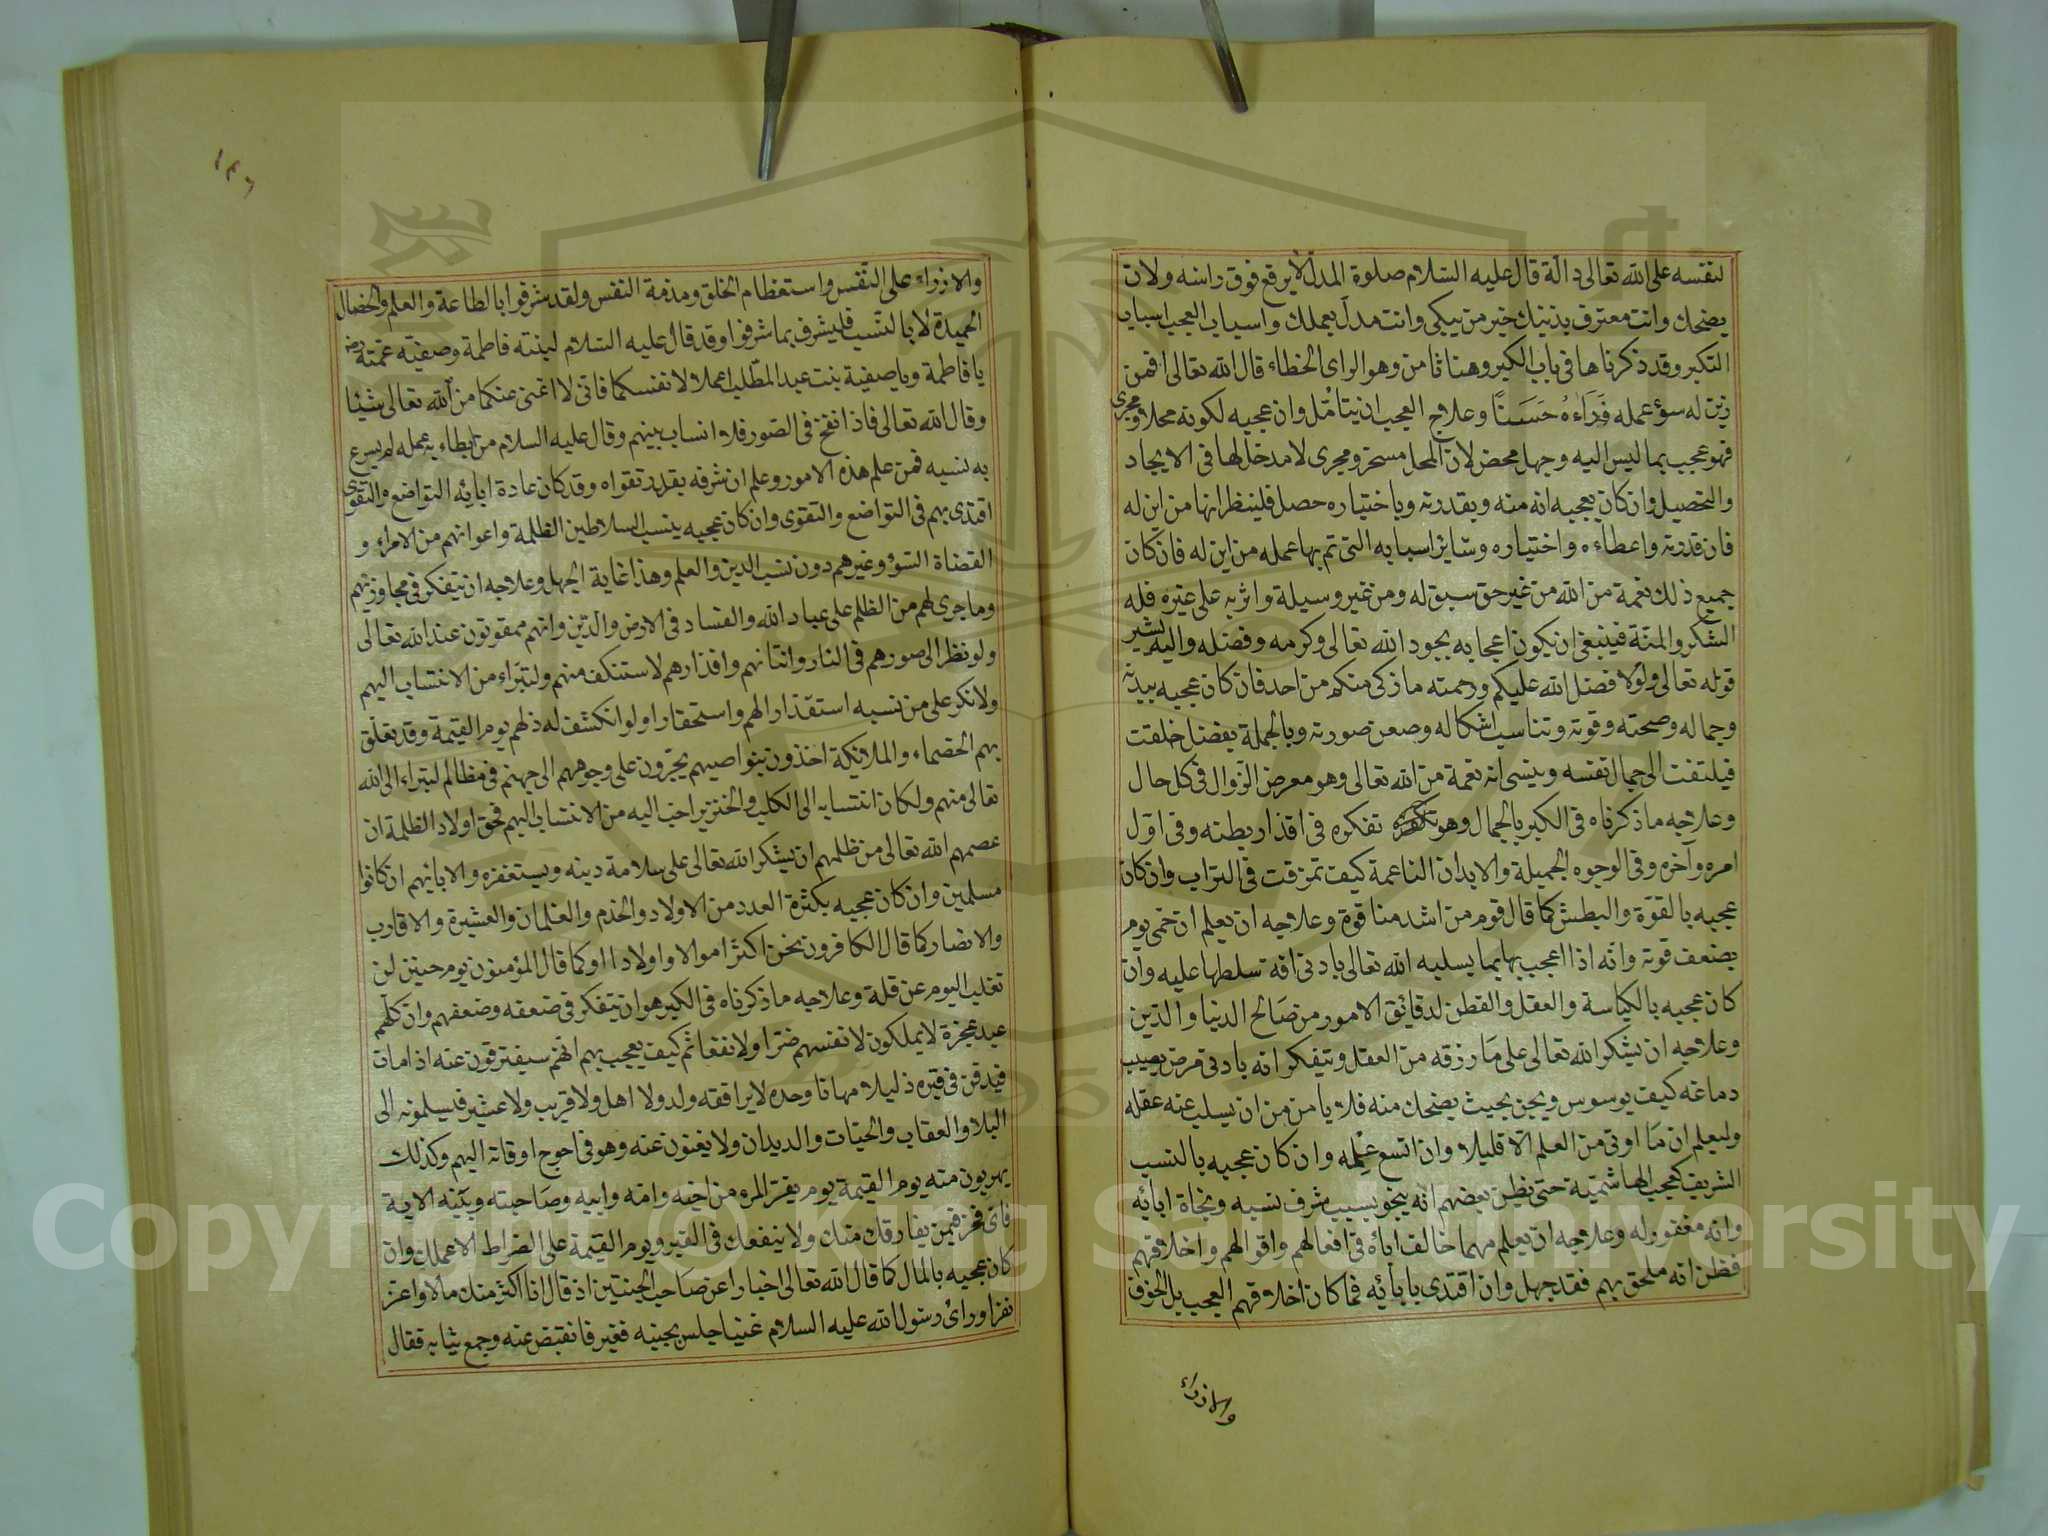 لنفسه على الله تعالى دالة قال عليه السلام صلوة المدل لا يرفع فوق راسه ولان
يضحك وانت معترف بذنبك خير من يبكى وانت مدل بعملك واسباب العجب اسباب
التكبر وقد ذكرناها فى باب الكبر وهنا ثامن وهو الراى الخطاء قال الله تعالى افمن
زين له سوء عمله فرآه حسنا وعلاج العجب ان يتأمل وان عجبه لكونه محلا ومجرى
فهو عجب بما ليس اليه وجهل محض لان المحل مسخر ومجرى لا مدخل لها فى الايجاد
والتحصيل وان كان يعجبه انه منه وبقدرته وباختياره حصل فلينظر انها من اين له
فان قدرته واعطاءه واختياره وسائر اسبابه التى تم بها عمله من اين له فان كان
جميع ذلك نعمة من الله من غير حق سبق له ومن غير وسيلة واثر به على غيره فله
الشكر والمنة فينبغى ان يكون اعجابه بجود الله تعالى وكرمه وفضله واليه يشير
قوله تعالى ولولا فضل الله عليكم ورحمته ما زكى منكم من احد فان كان عجبه ببدنه
وجماله وصحته وقوته وتناسب اشكاله وصورته وبالجملة بفضل خلقت
فيلتفت الى جمال نفسه وينسى انه نعمة من الله تعالى وهو معرض الزوال فى كل حال
وعلاجه ما ذكرناه فى الكبر بالجمال وهو تفكره فى اقذار بطنه وفى اول
امره وآخره وفى الوجوه الجميلة والابدان الناعمة كيف تمزقت فى التراب وان كان
عجبه بالقوة والبطش كما قال قوم من اشد منا قوة وعلاجه ان يعلم ان حمى يوم
يضعف قوته وانه اذا اعجب بها بما يسلبه الله تعالى بادنى افة سلطها عليه وان
كان عجبه بالكياسة والعقل والفطن لدقائق الامور من صالح الدنيا والدين
وعلاجه ان يشكر الله تعالى على ما رزقه من العقل ويتفكر انه بادنى مرض يصيب
دماغه كيف يوسوس ويجن بحيث يضحك منه فلا يامن من ان يسلب عنه عقله
وليعلم ان ما اوتى من العلم الا قليلا وان اتسع علمه وان كان عجبه بالنسب
الشريف كعجب الهاشمية حتى يظن بعضهم انه ينجو بسبب شرف نسبه ونجاة ابائه
وانه مغفور له وعلاجه ان يعلم مهما خالف اباءه فى افعالهم واقوالهم واخلاقهم
فظن انه ملحق بهم فقد جهل وان اقتدى بابائه فما كان اخلاقهم العجب بل الخوف
والازراء
١٤٦
والازراء على النفس واستعظام الخلق ومذمة النفس ولقد شرفوا بالطاعة والعلم والخصال
الحميدة لا بالنسب فليشرف بما شرفوا وقد قال عليه السلام لبنته فاطمة وصفية عمته رضه
يا فاطمة ويا صفية بنت عبد المطلب اعملا لانفسكما فانى لا اغنى عنكما من الله تعالى شيئا
وقال الله تعالى فاذا نفخ فى الصور فلا انساب بينهم وقال عليه السلام من ابطاء به عمله لم يسرع
به نسبه فمن علم هذه الامور وعلم ان شرفه بقدر تقواه وقد كان عادة ابائه التواضع والتقوى
اقتدى بهم فى التواضع والتقوى وان كان عجبه بنسب السلاطين الظلمة واعوانهم من الامراء و
القضاة السوء وغيرهم دون نسب الدين والعلم وهذا غاية الجهل وعلاجه ان يتفكر فى مجاوزتهم
وما جرى لهم من الظلم على عباد الله والفساد فى الارض والدين وانهم ممقوتون عند الله تعالى
ولو نظر الى صورهم فى النار وانتانهم واقذارهم لاستنكف منهم ولتبراء من الانتساب اليهم
ولانكر على من نسبه استقذارا لهم واستحقارا ولو انكشف له ذلهم يوم القيمة وقد تعلق
بهم الخصماء والملائكة اخذون بنواصيهم يجرون على وجوههم الى جهنم فى مظالم لتبراء الى الله
تعالى منهم ولكان انتسابه الى الكلب والخنزير احب اليه من الانتساب اليهم فحق اولاد الظلمة ان
عصمهم الله تعالى من ظلمهم ان يشكر الله تعالى على سلامة دينه ويستغفره ولابائهم ان كانوا
مسلمين وان كان عجبه بكثرة العدد من الاولاد والخدم والغلمان والعشيرة والاقارب
والانصار كما قال الكافرون نحن اكثر اموالا واولادا او كما قال المؤمنون يوم حنين لن
تغلب اليوم عن قلة وعلاجه ما ذكرناه فى الكبر هو ان يتفكر فى ضعفه وضعفهم وان كلهم
عبيد عجزة لا يملكون لانفسهم ضرا ولا نفعا ثم كيف يعجب بهم انهم سيفترقون عنه اذا مات
فيدفن فى قبره ذليلا مهانا وحده لا يرافقه ولد ولا اهل ولا قريب ولا عشير فيسلمونه الى
البلاء والعقاب والحيات والديدان ولا يغنون عنه وهو فى احوج اوقاته اليهم وكذلك
يهربون منه يوم القيمة يوم يفر المرء من اخيه وامه وابيه وصاحبته وبنيه الاية
فاى فخر فيمن يفارقك منك ولا ينفعك فى القبر ويوم القيمة على الصراط الا عملك وان
كان عجبه بالمال كما قال الله تعالى اخبارا عن صاحب الجنتين اذ قال انا اكثر منك مالا واعز
نفرا وراى رسول الله عليه السلام غنيا جلس بجنبه فقير فانقبض عنه وجمع ثيابه فقال
Copyright © King Saud University